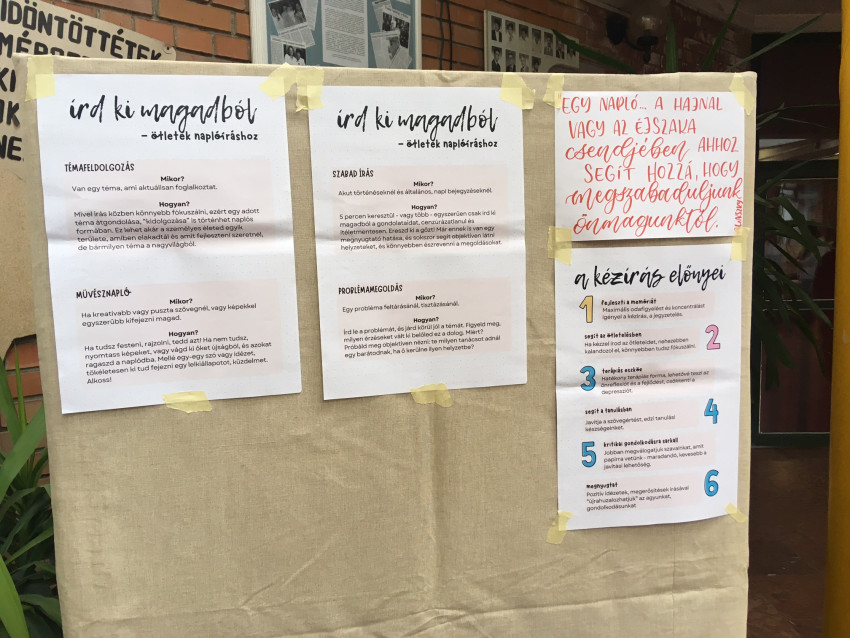 IDÖNTÖTTÉTEK
KI
NE.
írd ki magadból
- ötletek naplóíráshoz
TÉMAFELDOLGOZÁS
Mikor?
Van egy téma, ami aktuálisan foglalkoztat.
Hogyan?
Mivel írás közben könnyebb fókuszálni, ezért egy adott
téma átgondolása, "kidolgozása" is történhet naplós
formában. Ez lehet akár a személyes életed egyik
területe, amiben elakadtál és amit fejleszteni szeretnél,
de bármilyen téma a nagyvilágból.
MŰVÉSZNAPLÓ
Mikor?
Ha kreatívabb vagy puszta szövegnél, vagy képekkel
egyszerűbb kifejezni magad.
Hogyan?
Ha tudsz festeni, rajzolni, tedd azt! Ha nem tudsz,
nyomtass képeket, vagy vágd ki őket újságból, és azokat
ragaszd a naplódba. Mellé egy-egy szó vagy idézet,
tökéletesen ki tud fejezni egy lelkiállapotot, küzdelmet.
Alkoss!
írd ki magadból
- ötletek naplóíráshoz
SZABAD ÍRÁS
Mikor?
Akut történéseknél és általános, napi bejegyzéseknél.
Hogyan?
5 percen keresztül - vagy több - egyszerűen csak írd ki
magadból a gondolataidat, cenzúrázatlanul és
ítéletmentesen. Ereszd ki a gőzt! Már ennek is van egy
megnyugtató hatása, és sokszor segít objektíven látni
helyzeteket, és könnyebben észrevenni a megoldásokat.
PROBLÉMAMEGOLDÁS
Mikor?
Egy probléma feltárásánál, tisztázásánál.
Hogyan?
Írd le a problémát, és járd körül jól a témát. Figyeld meg,
milyen érzéseket vált ki belőled ez a dolog. Miért?
Próbáld meg objektíven nézni: te milyen tanácsot adnál
egy barátodnak, ha ő kerülne ilyen helyzetbe?
EGY NAPLÓ... A HAJNAL
VAGY AZ ÉJSZAKA
csendjében AHHOZ
SEGÍT HOZZÁ, HOGY
megszabaduljunk
önmagunktól.
a kézírás előnyei
1 fejleszti a memóriát
Maximális odafigyelést és koncentrálást
igényel a kézírás, a jegyzetelés.
segít az ötletelésben
Ha kézzel írod az ötleteidet, nehezebben
kalandozol el, könnyebben tudsz fókuszálni.
2
3 terápiás eszköz
Hatékony terápiás forma, lehetővé teszi az
önreflexiót és a fejlődést, csökkenti a
depressziót.
segít a tanulásban
Javítja a szövegértést, add tanulási
készségeinket.
4
5 kritikai gondolkodásra sarkall
Jobban megválogatjuk szavainkat, amit
papírra vetünk - maradandó, kevesebb a
javítási lehetőség.
megnyugtat
Pozitív idézetek, megerősítések írásával
"újrahuzalozhatjuk" az agyunkat,
gondolkodásunkat
6